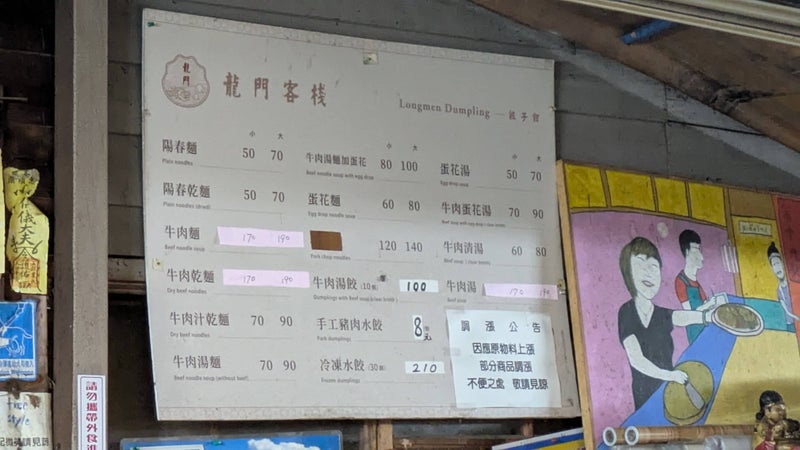 龍門
龍門客棧
Longmen Dumpling — 餃子館
小 大
陽春麵 50 70
Plain noodles
陽春乾麵 50 70
Plain noodles (dried)
牛肉麵 170 190
Beef noodle soup
牛肉乾麵 170 190
Dry beef noodles
牛肉汁乾麵 70 90
Dry beef noodles
牛肉湯麵 70 90
Beef noodle soup (without beef)
小 大
牛肉湯麵加蛋花 80 100
Beef noodle soup with egg drop
蛋花麵 60 80
Egg drop noodle soup
120 140
Pork chop noodles
牛肉湯餃(10個) 100
Dumplings with Beef soup (clear broth)
手工豬肉水餃 8元
Pork dumplings
冷凍水餃(30個) 210
Frozen dumplings
小 大
蛋花湯 50 70
Egg drop soup
牛肉蛋花湯 70 90
Beef soup with egg drop (clear broth)
牛肉清湯 60 80
Beef soup (clear broth)
牛肉湯 170 190
Beef soup
調漲公告
因應原物料上漲
部分商品調漲
不便之處 敬請見諒
請勿攜帶外食進